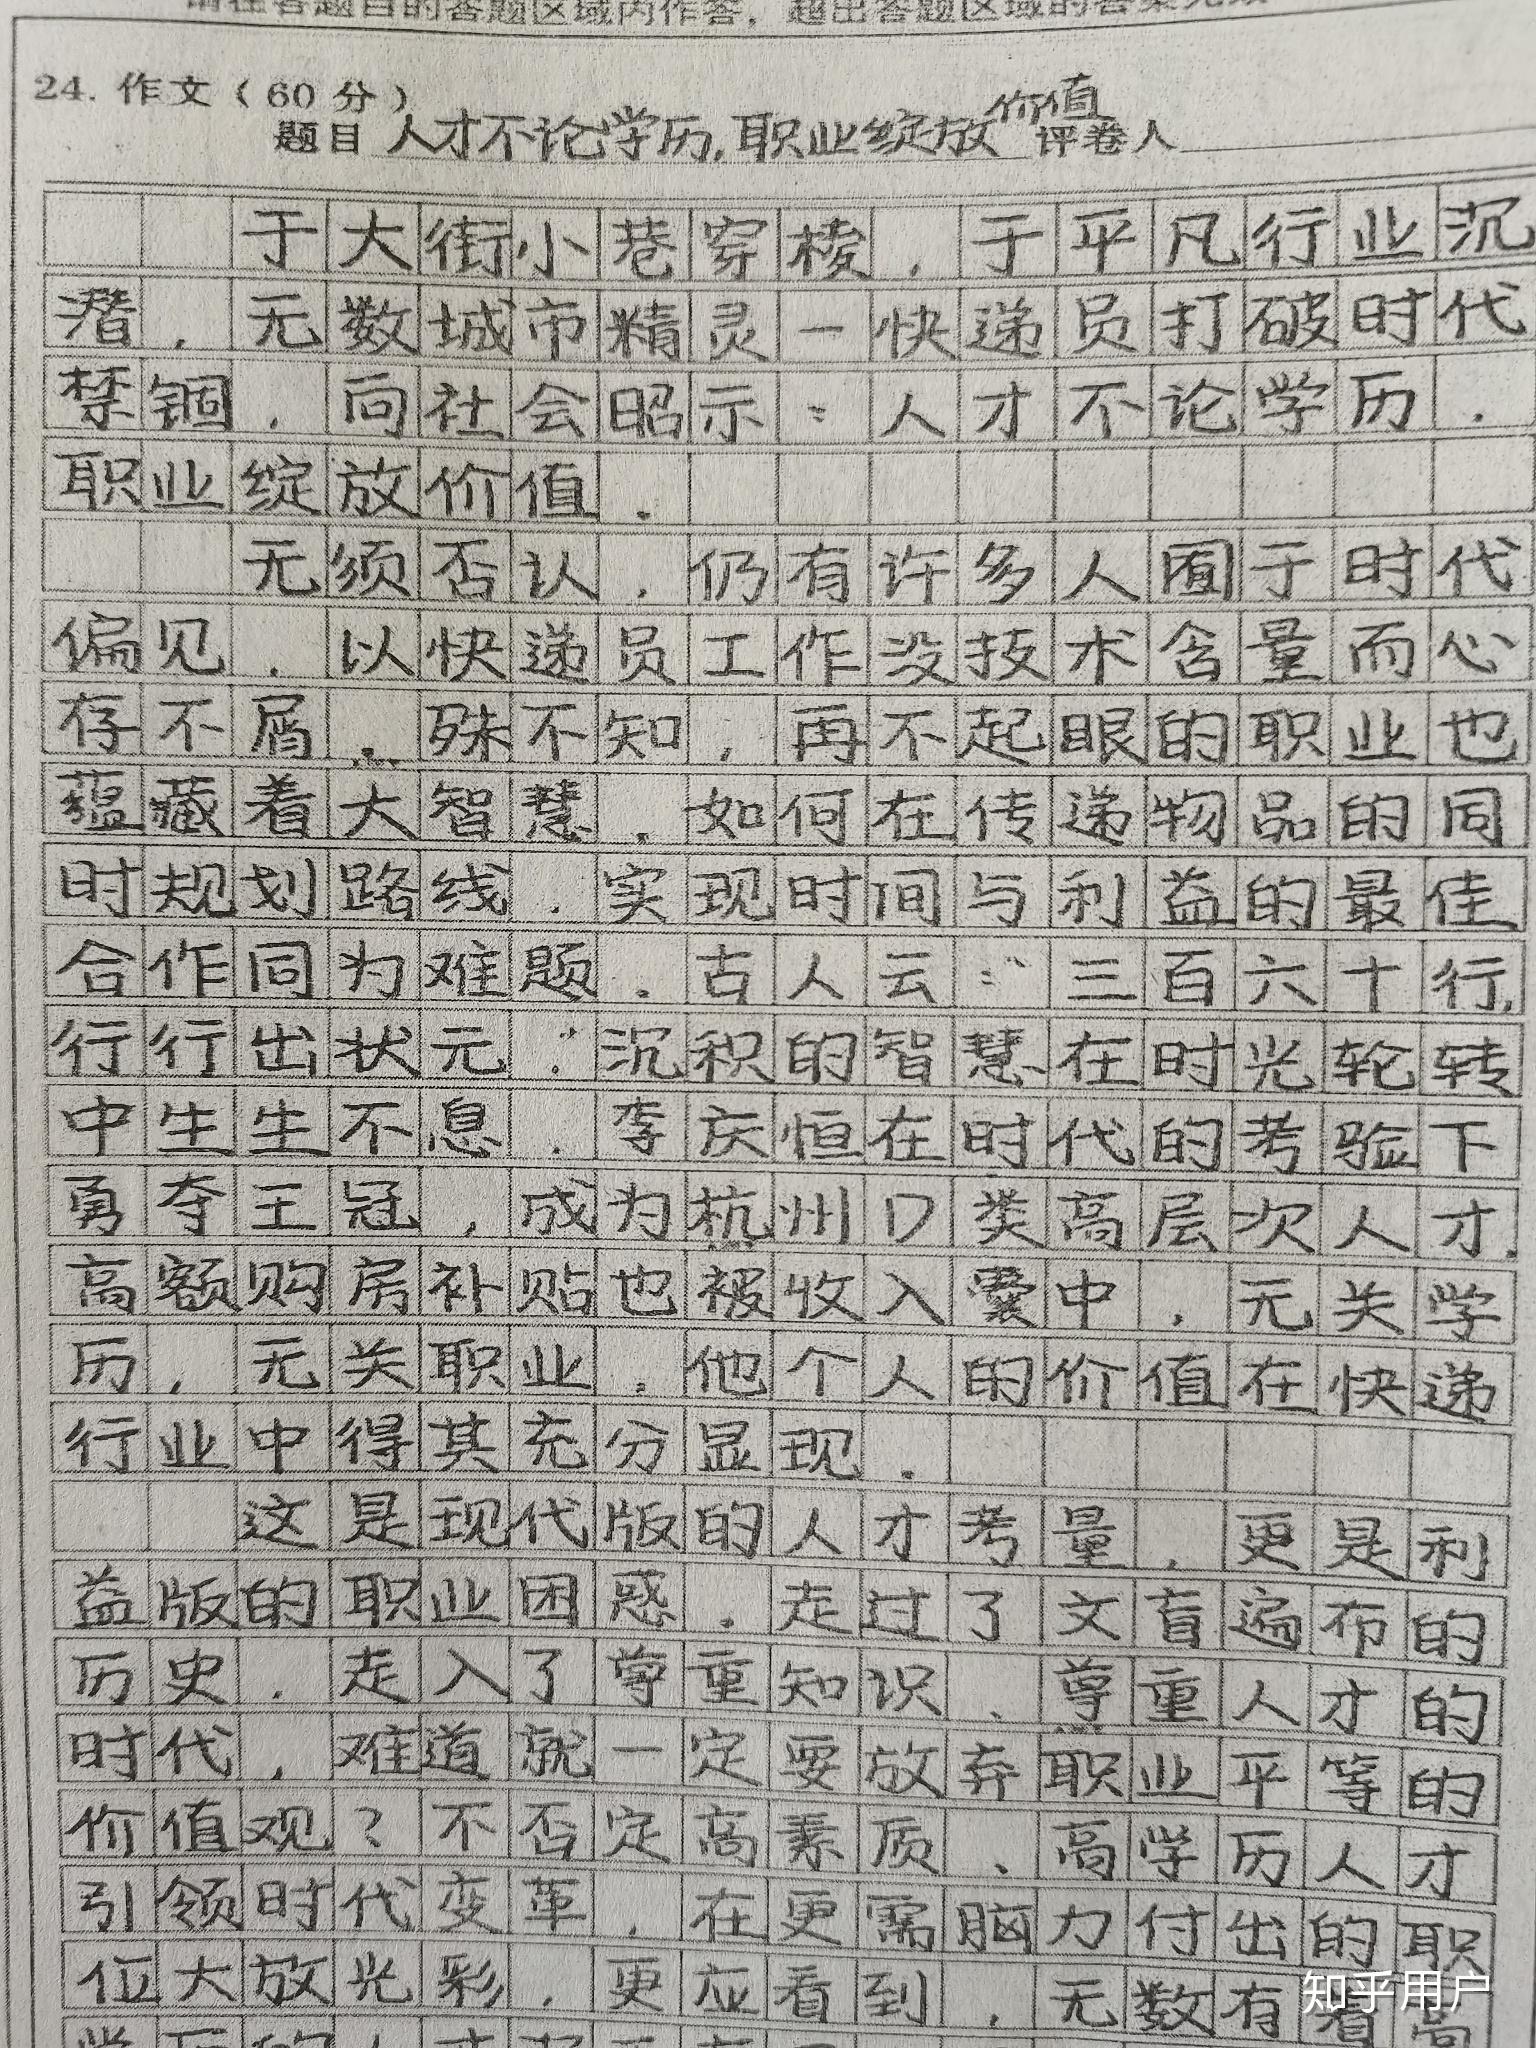 请在答题目的答题区域内作答，超出答题区域的答案无效
24. 作文（60分）
价值
题目 人才不论学历，职业绽放 评卷人
于大街小巷穿梭，于平凡行业沉
潜，无数城市精灵一快递员打破时代
禁锢，向社会昭示：人才不论学历，
职业绽放价值。
无须否认，仍有许多人囿于时代
偏见，以快递员工作没技术含量而心
存不屑。殊不知，再不起眼的职业也
蕴藏着大智慧，如何在传递物品的同
时规划路线，实现时间与利益的最佳
合作同为难题。古人云：“三百六十行，
行行出状元。”沉积的智慧在时光轮转
中生生不息。李庆恒在时代的考验下
勇夺王冠，成为杭州D类高层次人才，
高额购房补贴也被收入囊中，无关学
历，无关职业，他个人的价值在快递
行业中得其充分显现。
这是现代版的人才考量，更是利
益版的职业困惑。走过了文盲遍布的
历史，走入了尊重知识、尊重人才的
时代，难道就一定要放弃职业平等的
价值观？不否定高素质、高学历人才
引领时代变革，在更需脑力付出的职
位大放光彩，更应看到，无数有着高
知乎用户